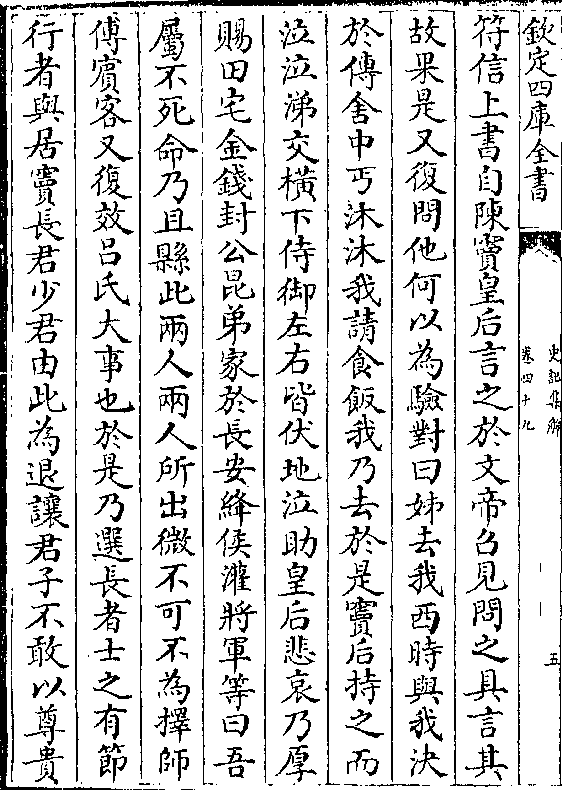 欽定四庫全書
史記集解
卷四十九
五
符信上書自陳竇皇后言之於文帝召見問之具言其
故果是又復問他何以為驗對曰姊去我西時與我決
於傳舍中丐沐沐我請食飯我乃去於是竇后持之而
泣泣涕交橫下侍御左右皆伏地泣助皇后悲哀乃厚
賜田宅金錢封公昆弟家於長安絳侯灌將軍等曰吾
屬不死命乃且縣此兩人兩人所出微不可不為擇師
傅賓客又復效呂氏大事也於是乃選長者士之有節
行者與居竇長君少君由此為退讓君子不敢以尊貴